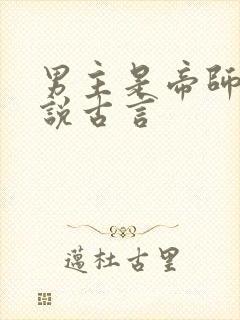 男主是帝師
說古言
邁杜古里